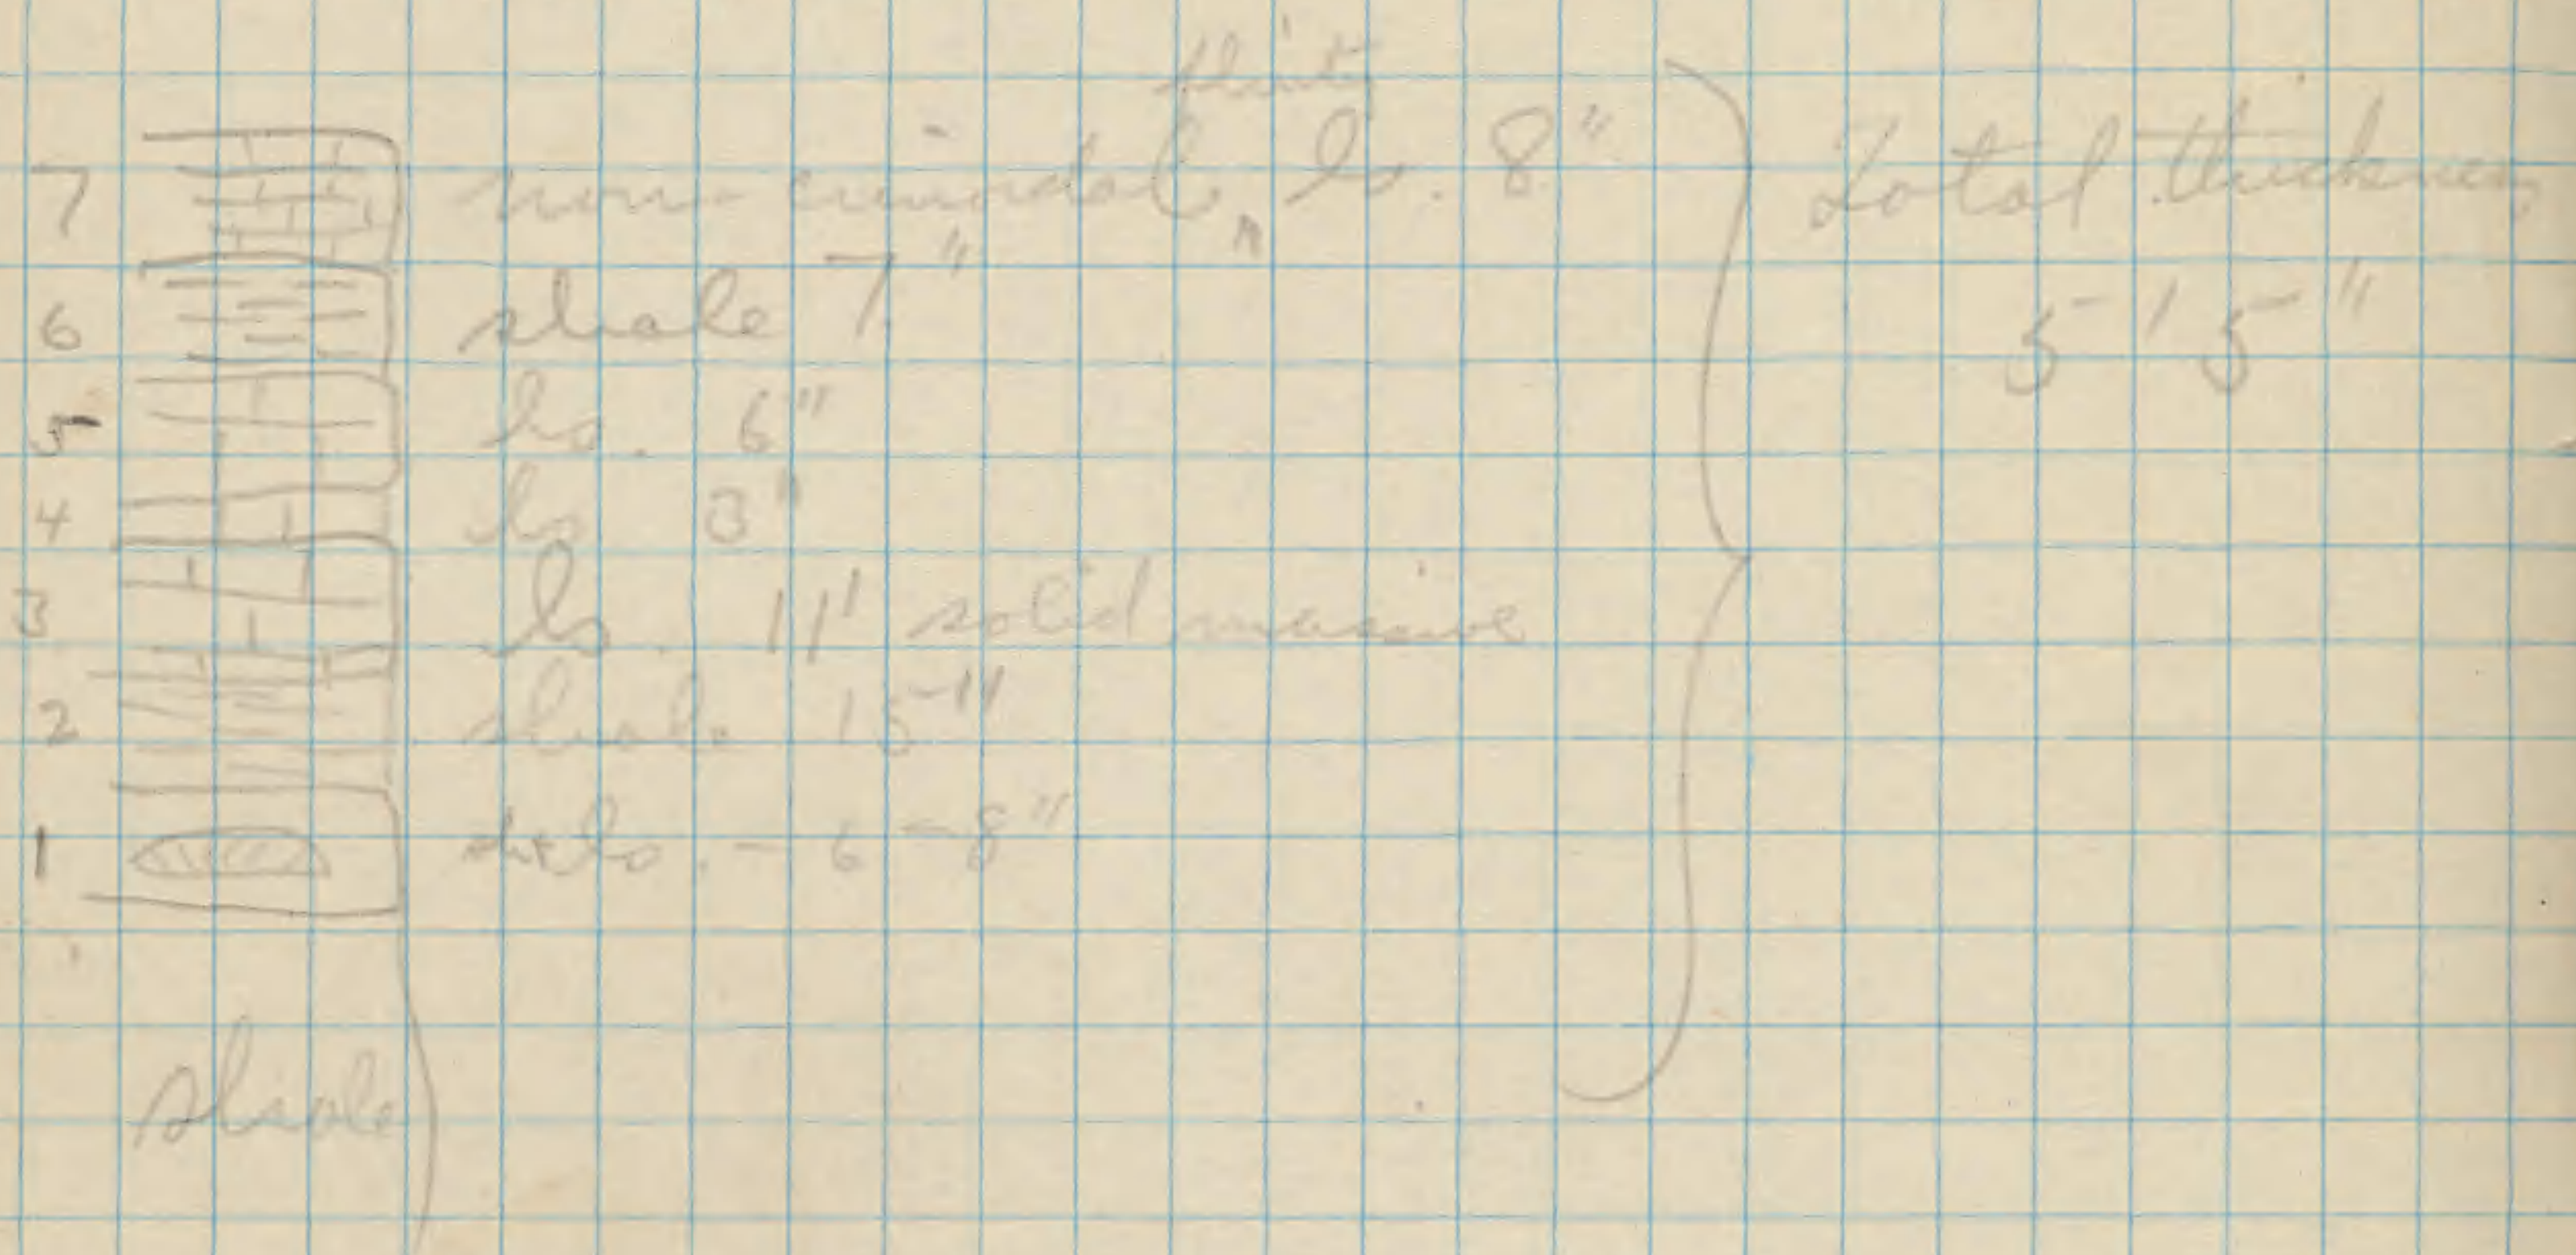 flinty
7 non-crinoidal ^ ls. 8"
6 shale 7"
5 ls. 6"
4 ls 3"
3 ls. 11' solid massive
2 shale 15"
1 ls. - 6-8"
shale
Total thickness
5' 5"